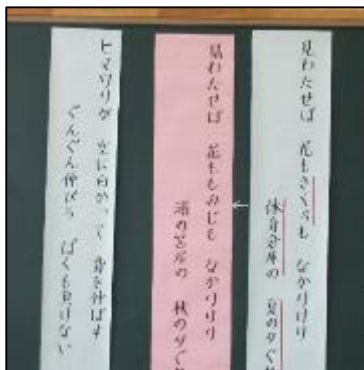 見わたせば 花もさくらも なかりけり
体育倉庫の 夏の夕ぐれ
見わたせば 花ももみじも なかりけり
浦の苫屋の 秋の夕ぐれ
ヒマワリが 空に向かって 背を伸ばす
ぐんぐん伸びろ ぼくも負けない